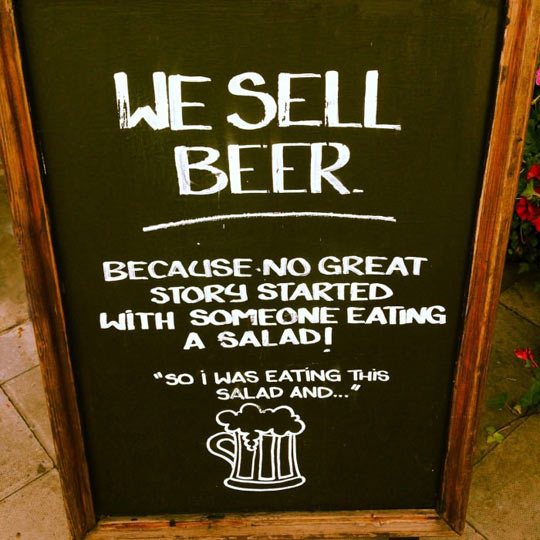 WE SELL
BEER.
BECAUSE NO GREAT
STORY STARTED
WiTH SOMEONE EATING
A SALAD!
"SO i WAS EATING THiS
SALAD AND..."